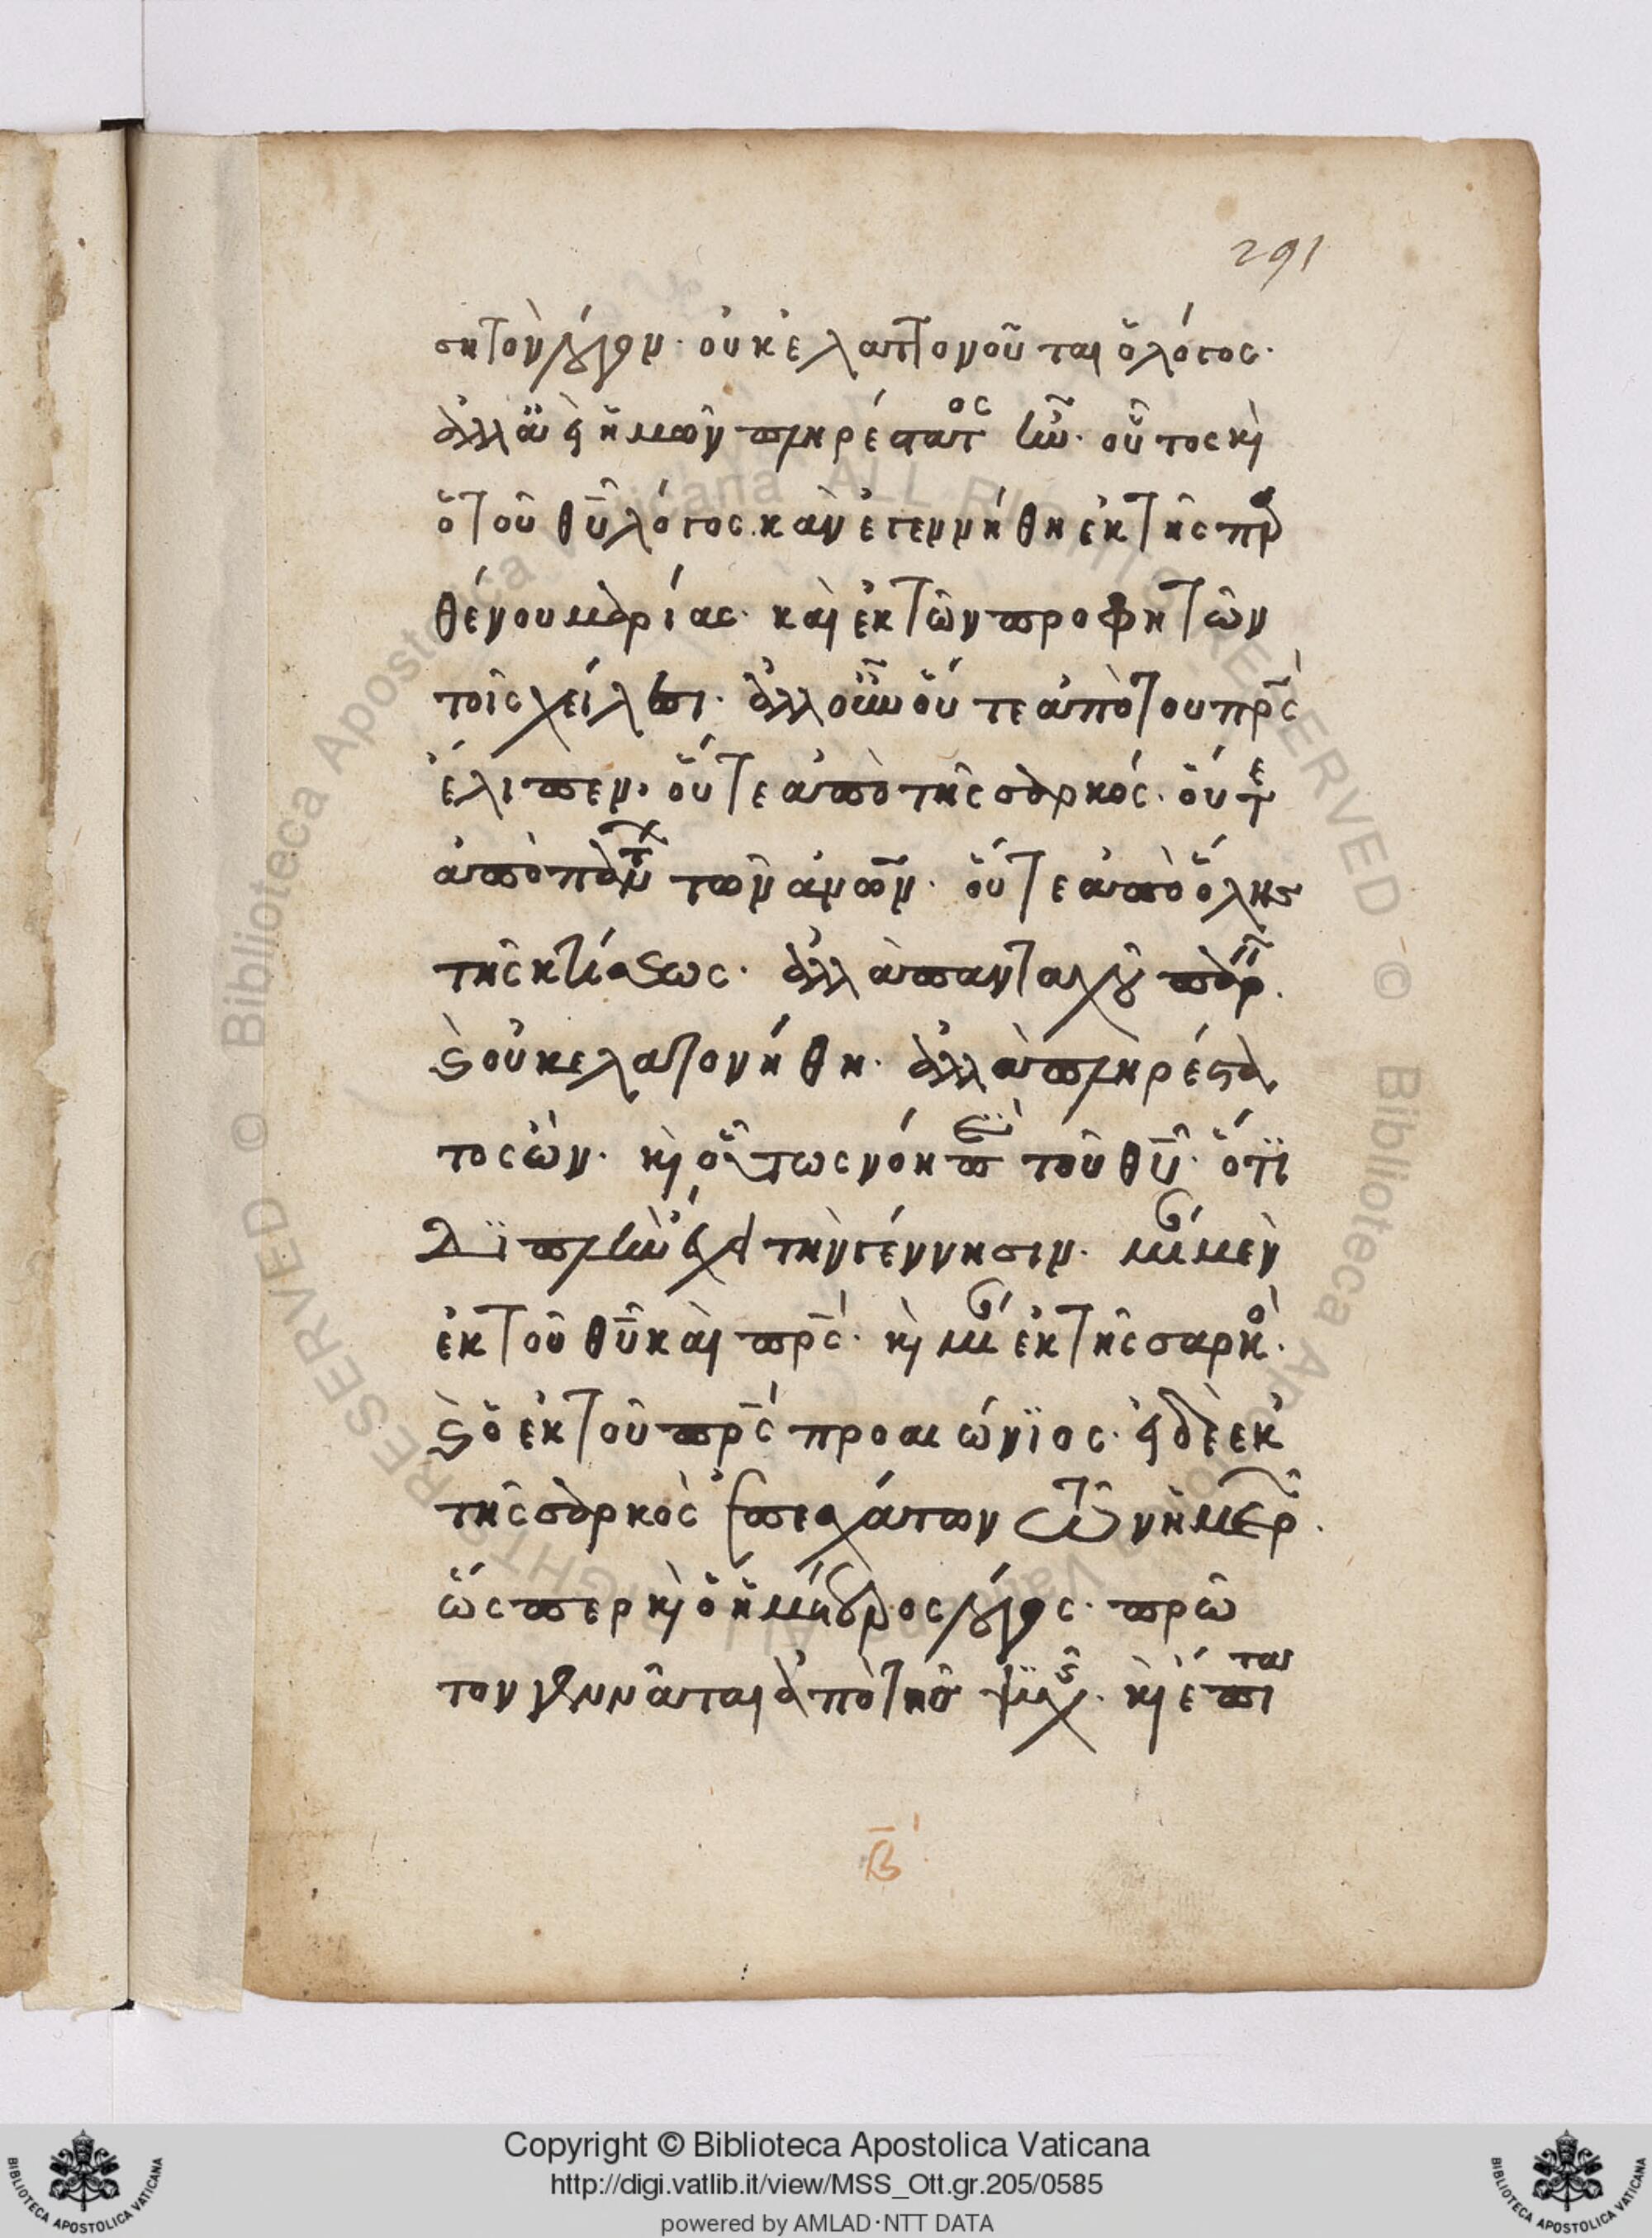 291
σητον λόγον· οὐκ ἐλαττονοῦται ὁ λόγος·
ἀλλὰ ἐξ ἡμῶν πληρέστατος ὤν· οὕτος κὶ
ὁ τοῦ θῦ λόγος. κἀν ἐγεννήθη ἐκ τῆς παρ
θένου μαρίας· καὶ ἐκ τῶν προφητῶν
τοῖς χείλεσι· ἀλλ οὖν οὔτε ἀπὸ του πρς
ἐλιπεν· οὔτε ἀπὸ τῆς σαρκός· οὔτε
ἀπὸ πάντων τῶν ἀνων· οὔτε ἀπὸ ὅλης
τῆς κτίσεως· ἀλλὰ πανταχοῦ παρ.
κὶ οὐκ ἐλαττονήθη· ἀλλὰ πληρέστα
τος ὢν· κὶ οὕτως νόη ἐπὶ τοῦ θῦ· ὅτϊ
Δϊπλὴν ἔχει τὴν γέννησιν· μίαν μὲν
ἐκ τοῦ θῦ καὶ πρς· κὶ μίαν ἐκ τῆς σαρκὸ·
κὶ ὁ ἐκ τοῦ πρς προαιώνϊος· ἡ δὲ ἐκ
τῆς σαρκὸς ἐπ ἐσχάτων τῶν ἡμερ.
ὥς περ κὶ ὁ ἡμέτερος λόγος· πρῶ
τον γεννᾶται ἀπὸ τῆς ψϋχῆς. κὶ ἐπιται
β̄
Copyright © Biblioteca Apostolica Vaticana
http://digi.vatlib.it/view/MSS_Ott.gr.205/0585
powered by AMLAD·NTT DATA